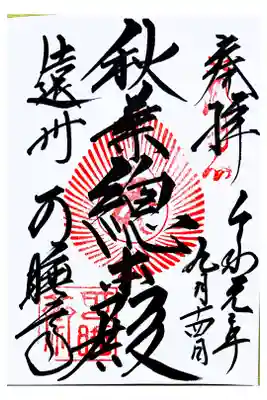 奉拝
令和元年
九月十四日
秋葉總本殿
遠州 可睡斎